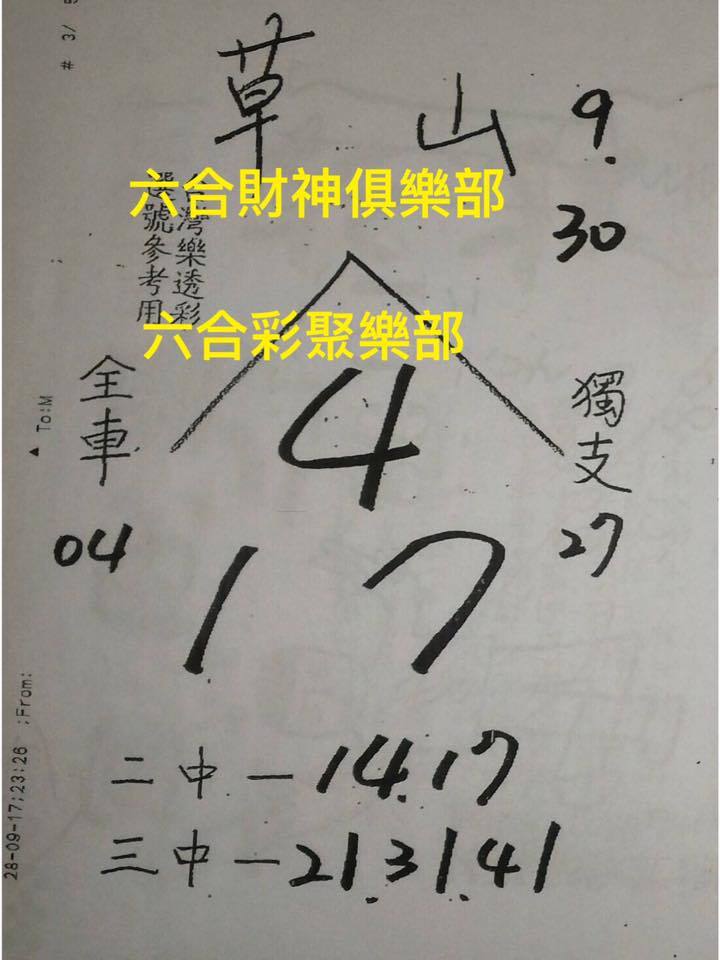 # 3/
草山 9.
30
六合財神俱樂部
台灣樂透彩
選號參考用
六合彩聚樂部
▲ To:M
全車
04
獨支
27
4
1 7
28-09-17;23:26 ;From:
二中一14.17
三中一21.31.41